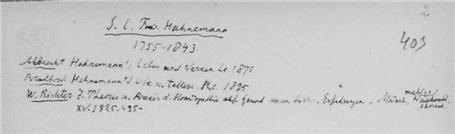 2
S. C. Fr. Hahnemann
403
1755-1843
Albrecht Hahnemann's Leben und Lz. 1875
Bradford Hahnemann's Life a. Letters. Ph. 1895
W. Richter Z. Theorie u. Praxis d. Homöopathie auf Grund Erfahrungen.
XV. 1925. 435-